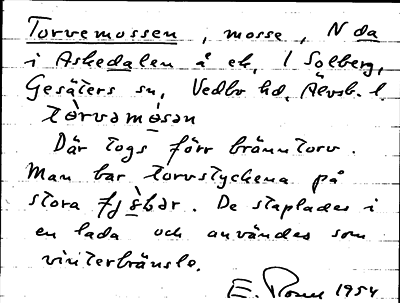 Torvemossen, mosse, N da
i Askedalen å ek. 1 Solberg,
Gesäters sn, Vedbo hd, Älvsb. l.
tòrvamo̱san
Där togs förr bränntorv.
Man bar torvstyckena på
stora fjø̀bar. De staplades i
en lada och användes som
vinterbränsle.
E. 1954